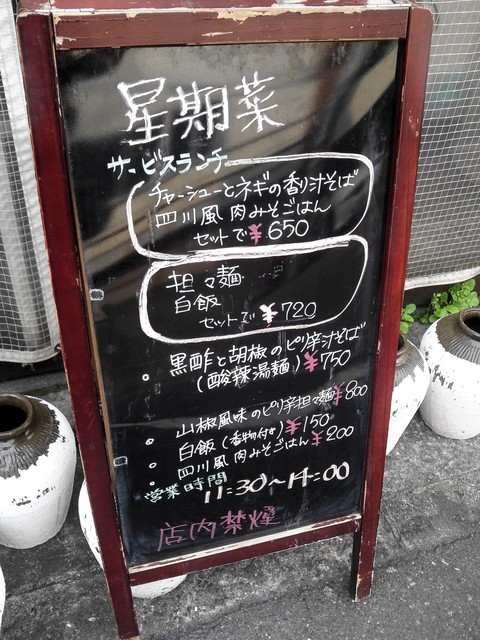 星期菜
サービスランチ
チャーシューとネギの香り汁そば
四川風肉みそごはん
セットで ¥650
担々麺
白飯
セットで ¥720
黒酢と胡椒のピリ辛汁そば
(酸辣湯麺) ¥750
山椒風味のピリ辛担々麺 ¥800
白飯(香物付き) ¥150
四川風肉みそごはん ¥200
営業時間
11:30〜14:00
店内禁煙